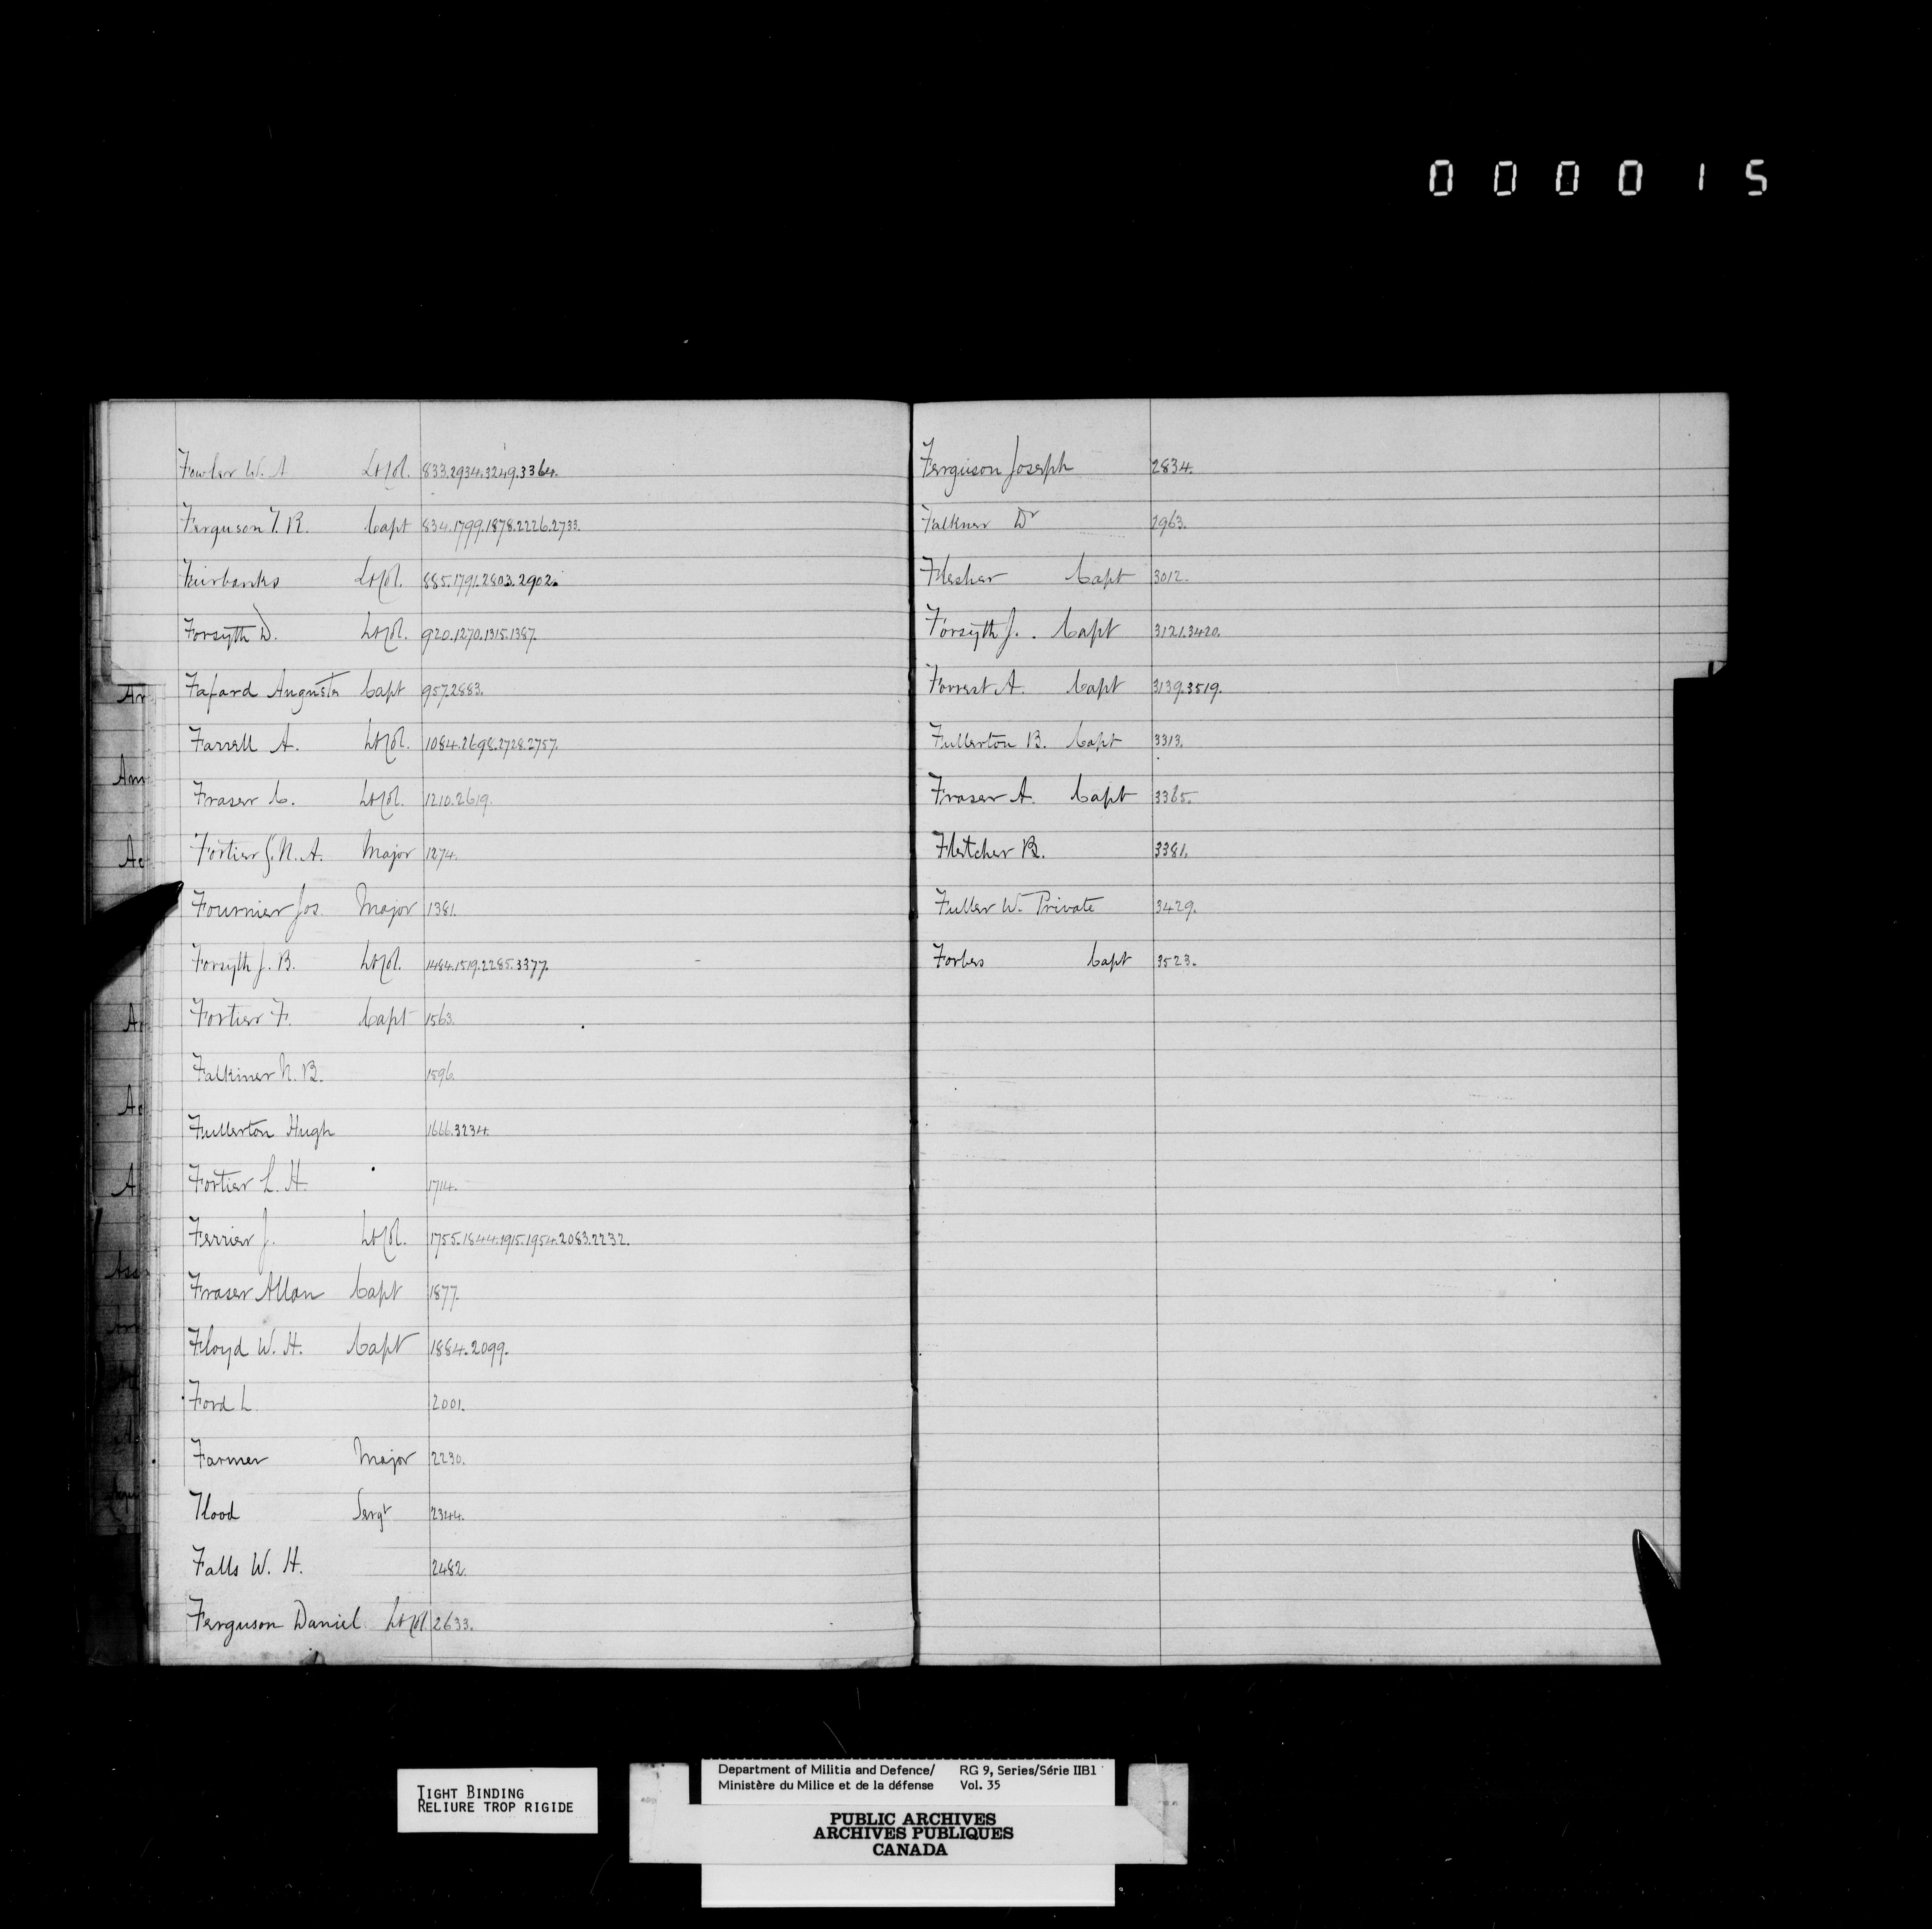 000015
Fowler W. A. Lt Col. 833.2934.3249.3364.
Ferguson T. R. Capt 834.1799.1878.2226.2733.
Fairbanks Lt Col. 885.1791.2803.2902.
Forsyth D. Lt Col. 920.1270.1315.1387.
Fafard Auguste Capt 957.2883.
Farrell A. Lt Col. 1084.2698.2728.2757.
Fraser C. Lt Col. 1210.2619.
Fortier G. N. A. Major 1274.
Fournier Jos. Major 1381.
Forsyth J. B. Lt Col. 1484.1519.2285.3377.
Fortier F. Capt 1563.
Falkiner N. B. 1596.
Fullerton Hugh 1666.3234.
Fortier L. H. 1714.
Ferrier J. Lt Col. 1755.1844.1915.1954.2083.2232.
Fraser Allan Capt 1877.
Floyd W. H. Capt 1884.2099.
Ford L. 2001.
Farmer Major 2230.
Flood Sergt 2344.
Falls W. H. 2482.
Ferguson Daniel Lt Col. 2633.
Ferguson Joseph 2834.
Falkner Dr 2963.
Flesher Capt 3012.
Forsyth J. Capt 3121.3420.
Forrest A. Capt 3139.3519.
Fullerton B. Capt 3313.
Fraser A. Capt 3365.
Fletcher B. 3381.
Fuller W. Private 3429.
Forbes Capt 3523.
Ar
Am
Ac
TIGHT BINDING
RELIURE TROP RIGIDE
Department of Militia and Defence/ RG 9, Series/Série IIB1
Ministère du Milice et de la défense Vol. 35
PUBLIC ARCHIVES
ARCHIVES PUBLIQUES
CANADA